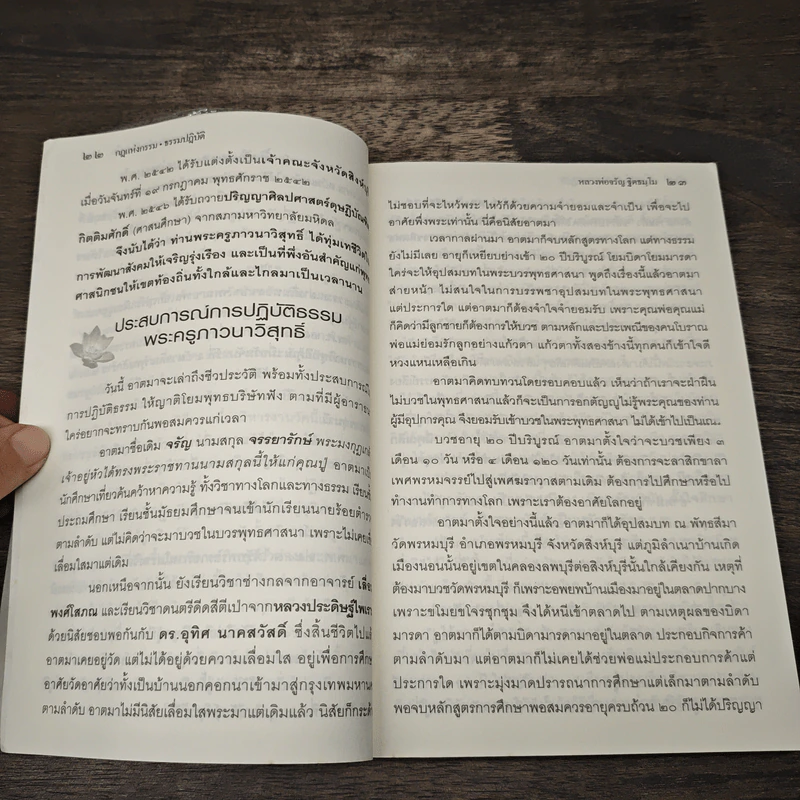 ๒๒ กฎแห่งกรรม • ธรรมปฏิบัติ
พ.ศ. ๒๕๔๒ ได้รับแต่งตั้งเป็นเจ้าคณะจังหวัดสิงห์บุ
เมื่อวันจันทร์ที่ ๑๙ กรกฎาคม พุทธศักราช ๒๕๔๒
พ.ศ. ๒๕๔๖ ได้รับถวายปริญญาศิลปศาสตร์ดุษฎีบัณฑิ
กิตติมศักดิ์ (ศาสนศึกษา) จากสภามหาวิทยาลัยมหิดล
จึงนับได้ว่า ท่านพระครูภาวนาวิสุทธิ์ ได้ทุ่มเทชีวิตใ
การพัฒนาสังคมให้เจริญรุ่งเรือง และเป็นที่พึ่งอันสำคัญแก่พุท
ศาสนิกชนให้เขตท้องถิ่นทั้งใกล้และไกลมาเป็นเวลานาน
ประสบการณ์การปฏิบัติธรรม
พระครูภาวนาวิสุทธิ์
วันนี้ อาตมาจะเล่าถึงชีวประวัติ พร้อมทั้งประสบการณ์
การปฏิบัติธรรม ให้ญาติโยมพุทธบริษัทฟัง ตามที่มีผู้อาราธ
ใคร่อยากจะทราบกันพอสมควรแก่เวลา
อาตมาชื่อเดิม จรัญ นามสกุล จรรยารักษ์ พระมงกุฎเก
เจ้าอยู่หัวได้ทรงพระราชทานนามสกุลนี้ให้แก่คุณปู่ อาตมาเ
นักศึกษาเที่ยวค้นคว้าหาความรู้ ทั้งวิชาทางโลกและทางธรรม เรียน
ประถมศึกษา เรียนชั้นมัธยมศึกษาจนเข้านักเรียนนายร้อยตำร
ตามลำดับ แต่ไม่คิดว่าจะมาบวชในบวรพุทธศาสนา เพราะไม่เคย
เลื่อมใสมาแต่เดิม
นอกเหนือจากนั้น ยังเรียนวิชาช่างกลจากอาจารย์ เลื่อ
พงศ์โสภณ และเรียนวิชาดนตรีดีดสีตีเป่าจากหลวงประดิษฐ์ไพเร
ด้วยนิสัยชอบพอกันกับ ดร.อุทิศ นาคสวัสดิ์ ซึ่งสิ้นชีวิตไปแ
อาตมาเคยอยู่วัด แต่ไม่ได้อยู่ด้วยความเลื่อมใส อยู่เพื่อการศึก
อาศัยวัดอาศัยว่าทั้งเป็นบ้านนอกคอกนาเข้ามาสู่กรุงเทพมหาน
ตามลำดับ อาตมาไม่มีนิสัยเลื่อมใสพระมาแต่เดิมแล้ว นิสัยก็กระด้
หลวงพ่อจรัญ ฐิตธมฺโม ๒๓
ไม่ชอบที่จะไหว้พระ ไหว้ก็ด้วยความจำยอมและจำเป็น เพื่อจะไป
อาศัยพึ่งพระเท่านั้น นี่คือนิสัยอาตมา
เวลากาลผ่านมา อาตมาก็จบหลักสูตรทางโลก แต่ทางธรรม
ยังไม่มีเลย อายุก็เหยียบย่างเข้า ๒๐ ปีบริบูรณ์ โยมบิดาโยมมารดา
ใคร่จะให้อุปสมบทในพระบวรพุทธศาสนา พูดถึงเรื่องนี้แล้วอาตมา
ส่ายหน้า ไม่สนใจในการบรรพชาอุปสมบทในพระพุทธศาสนา
แต่ประการใด แต่อาตมาก็ต้องจำใจจำยอมรับ เพราะคุณพ่อคุณแม่
ก็คิดว่ามีลูกชายก็ต้องการให้บวช ตามหลักและประเพณีของคนโบราณ
พ่อแม่ย่อมรักลูกอย่างแก้วตา แก้วตาทั้งสองข้างนี้ทุกคนก็เข้าใจดี
หวงแหนเหลือเกิน
อาตมาคิดทบทวนโดยรอบคอบแล้ว เห็นว่าถ้าเราจะฝ่าฝืน
ไม่บวชในพุทธศาสนาแล้วก็จะเป็นการอกตัญญูไม่รู้พระคุณของท่าน
ผู้มีอุปการะคุณ จึงยอมรับเข้าบวชในพระพุทธศาสนา ไม่ได้เข้าไปเป็นเณ.
บวชอายุ ๒๐ ปีบริบูรณ์ อาตมาตั้งใจว่าจะบวชเพียง ๓
เดือน ๑๐ วัน หรือ ๔ เดือน ๑๒๐ วันเท่านั้น ต้องการจะลาสิกขาลา
เพศพรหมจรรย์ไปสู่เพศฆราวาสตามเดิม ต้องการไปศึกษาหรือไป
ทำงานทำการทางโลก เพราะเราต้องอาศัยโลกอยู่
อาตมาตั้งใจอย่างนี้แล้ว อาตมาก็ได้อุปสมบท ณ พัทธสีมา
วัดพรหมบุรี อำเภอพรหมบุรี จังหวัดสิงห์บุรี แต่ภูมิลำเนาบ้านเกิด
เมืองนอนนั้นอยู่เขตในคลองลพบุรีต่อสิงห์บุรีนั้นใกล้เคียงกัน เหตุที่
ต้องมาบวชวัดพรหมบุรี ก็เพราะอพยพบ้านเมืองมาอยู่ในตลาดปากบาง
เพราะขโมยขโจรชุกชุม จึงได้หนีเข้าตลาดไป ตามเหตุผลของบิดา
มารดา อาตมาก็ได้ตามบิดามารดามาอยู่ในตลาด ประกอบกิจการค้า
ตามลำดับมา แต่อาตมาก็ไม่เคยได้ช่วยพ่อแม่ประกอบการค้าแต่
ประการใด เพราะมุ่งมาดปรารถนาการศึกษาแต่เล็กมาตามลำดับ
พอจบหลักสูตรการศึกษาพอสมควรอายุครบถ้วน ๒๐ ก็ไม่ได้ปริญญา